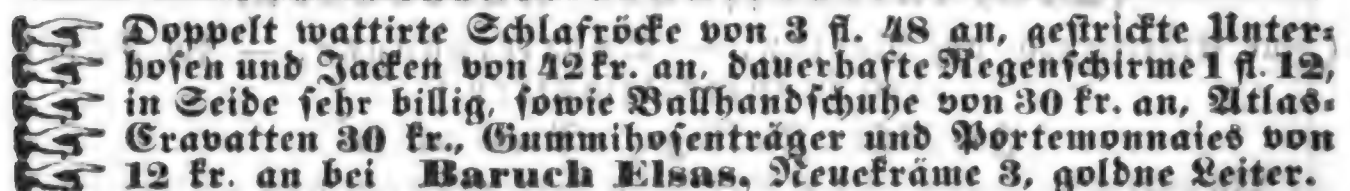 Doppelt wattirte Schlafröcke von 3 fl. 48 an, gestrickte Unter-
hosen und Jacken von 42 kr. an, dauerhafte Regenschirme 1 fl. 12,
in Seide sehr billig, sowie Ballhandschuhe von 30 kr. an, Atlas-
Cravatten 30 kr., Gummihosenträger und Portemonnaies von
12 kr. an bei Baruch Elsas, Neuekräme 3, goldne Leiter.